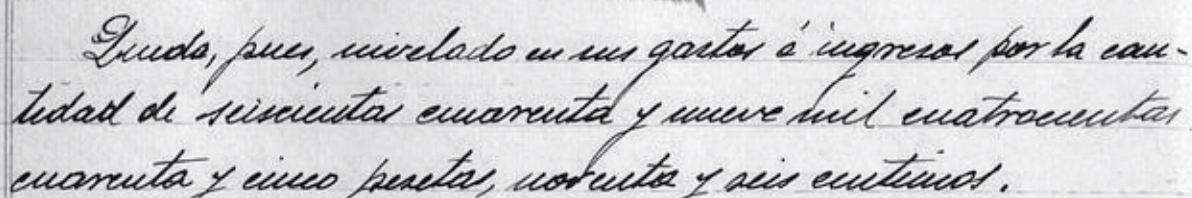 Queda, pues, nivelado en sus gastos é ingresos por la can-
tidad de seiscientas cuarenta y nueve mil cuatrocientas
cuarenta y cinco pesetas, noventa y seis centimos.